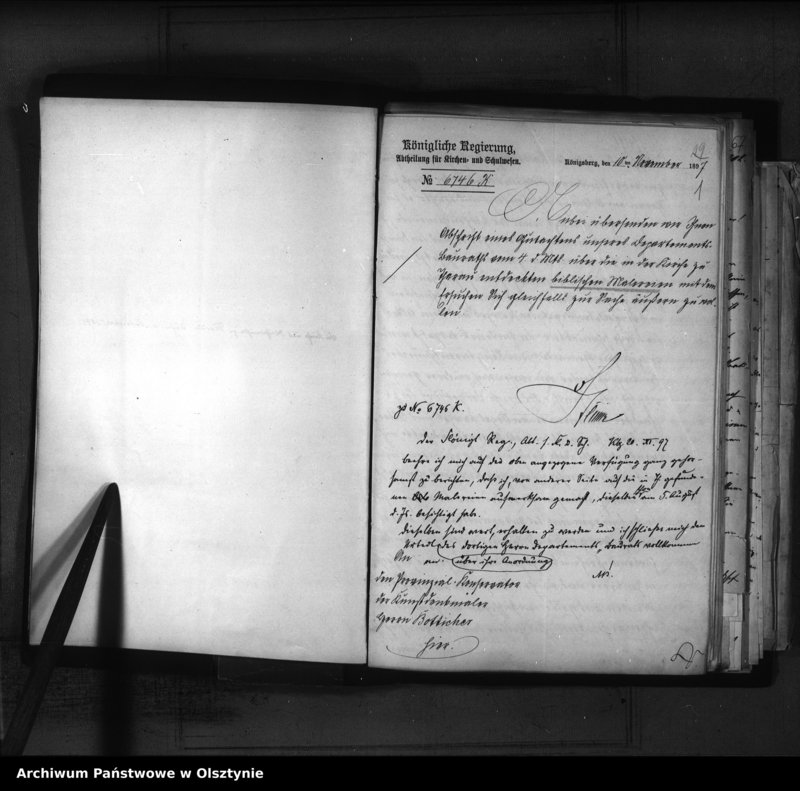 Königliche Regierung,
Abtheilung für Kirchen- und Schulwesen.
№ 6746 K
Königsberg, den 10ten November 1897
29
1
Anbei übersenden wir Ihnen
Abschrift eines Gutachtens unseres Departements-
Bauraths vom 4. d. Mts. über die in der Kirche zu
Tharau entdeckten biblischen Malereien mit dem
Ersuchen Sich gleichfalls zur Sache äußern zu wol-
len.
zu No 6746 K.
Der Königl. Reg., Abt. f. K. u. Sch. Kbg. 20. XI. 97
beehre ich mich auf die oben angezogene Verfügung ganz gehor-
samst zu berichten, daß ich, von anderer Seite auf die in Th. gefunde-
nen Malereien aufmerksam gemacht, dieselben am 5. August
d. Js. besichtigt habe.
Dieselben sind wert, erhalten zu werden und ich schließe mich dem
Urteil des dortigen Herrn Departements-Baurats vollkommen
an. über ihre Anordnung
An
den Provinzial-Konservator
der Kunstdenkmäler
Herrn Bötticher
hier.
Archiwum Państwowe w Olsztynie